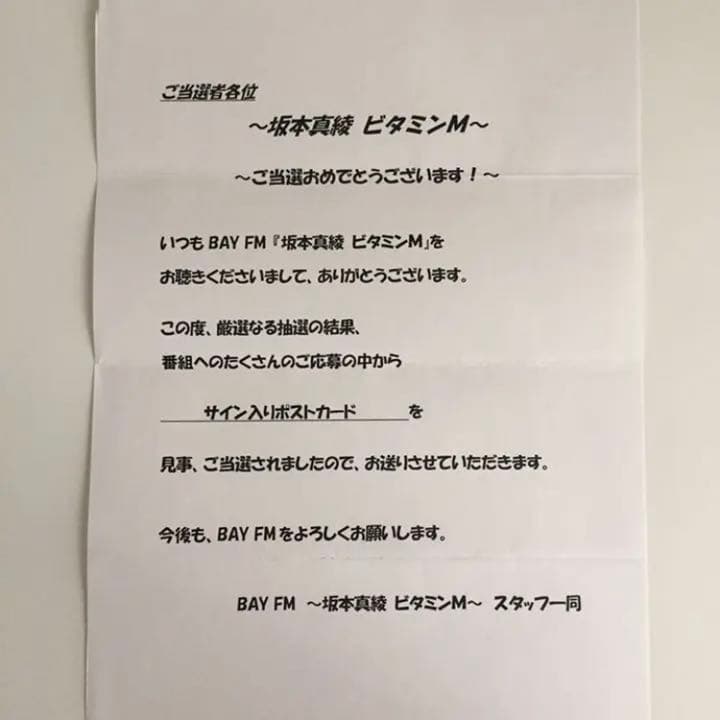 ご当選者各位
～坂本真綾 ビタミンM～
～ご当選おめでとうございます！～
いつも BAY FM 『坂本真綾 ビタミンM』を
お聴きくださいまして、ありがとうございます。
この度、厳選なる抽選の結果、
番組へのたくさんのご応募の中から
サイン入りポストカード を
見事、ご当選されましたので、お送りさせていただきます。
今後も、BAY FM をよろしくお願いします。
BAY FM ～坂本真綾 ビタミンM～ スタッフ一同